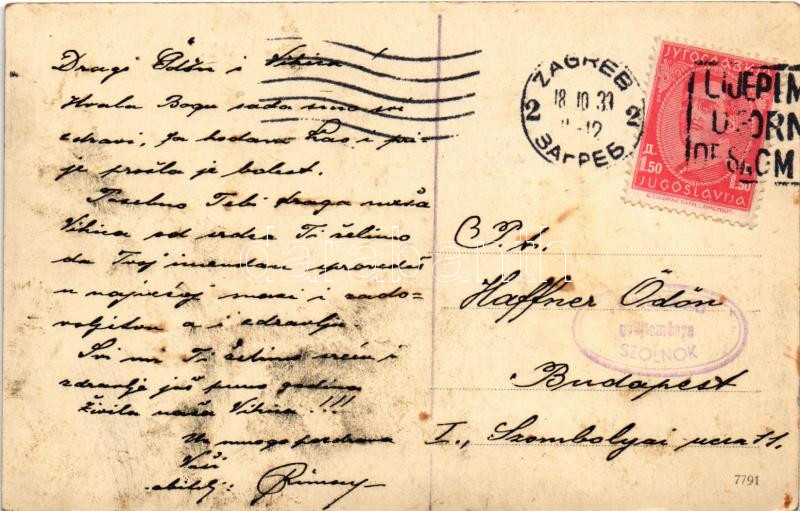 Dragi Ödön i Vikica
Hvala Bogu sada smo svi
zdravi, ja hodam kao i pri-
je prošla je bolest.
Posebno Tebi draga naša
Vikica od srdca Ti želimo
da Tvoj imendan sprovedeš
u najvećoj mazi i zado-
voljstvu a i zdravlju.
Svi mi Ti želimo sreću i
zdravlje još puno godina
živila naša Vikica!!!
Uz mnogo pozdrava
Vaši
obitelj:
ZAGREB
2 18 10 33 2
12
ЗАГРЕБ
LIJEPIM
UZORN
JУГОСЛАВ
Д. 1.50 1.50
JUGOSLAVIJA
P. t.
Haffner Ödön
gyűjteménye
SZOLNOK
Budapest
I., Szombolyai ucca 11.
7791
darabanth